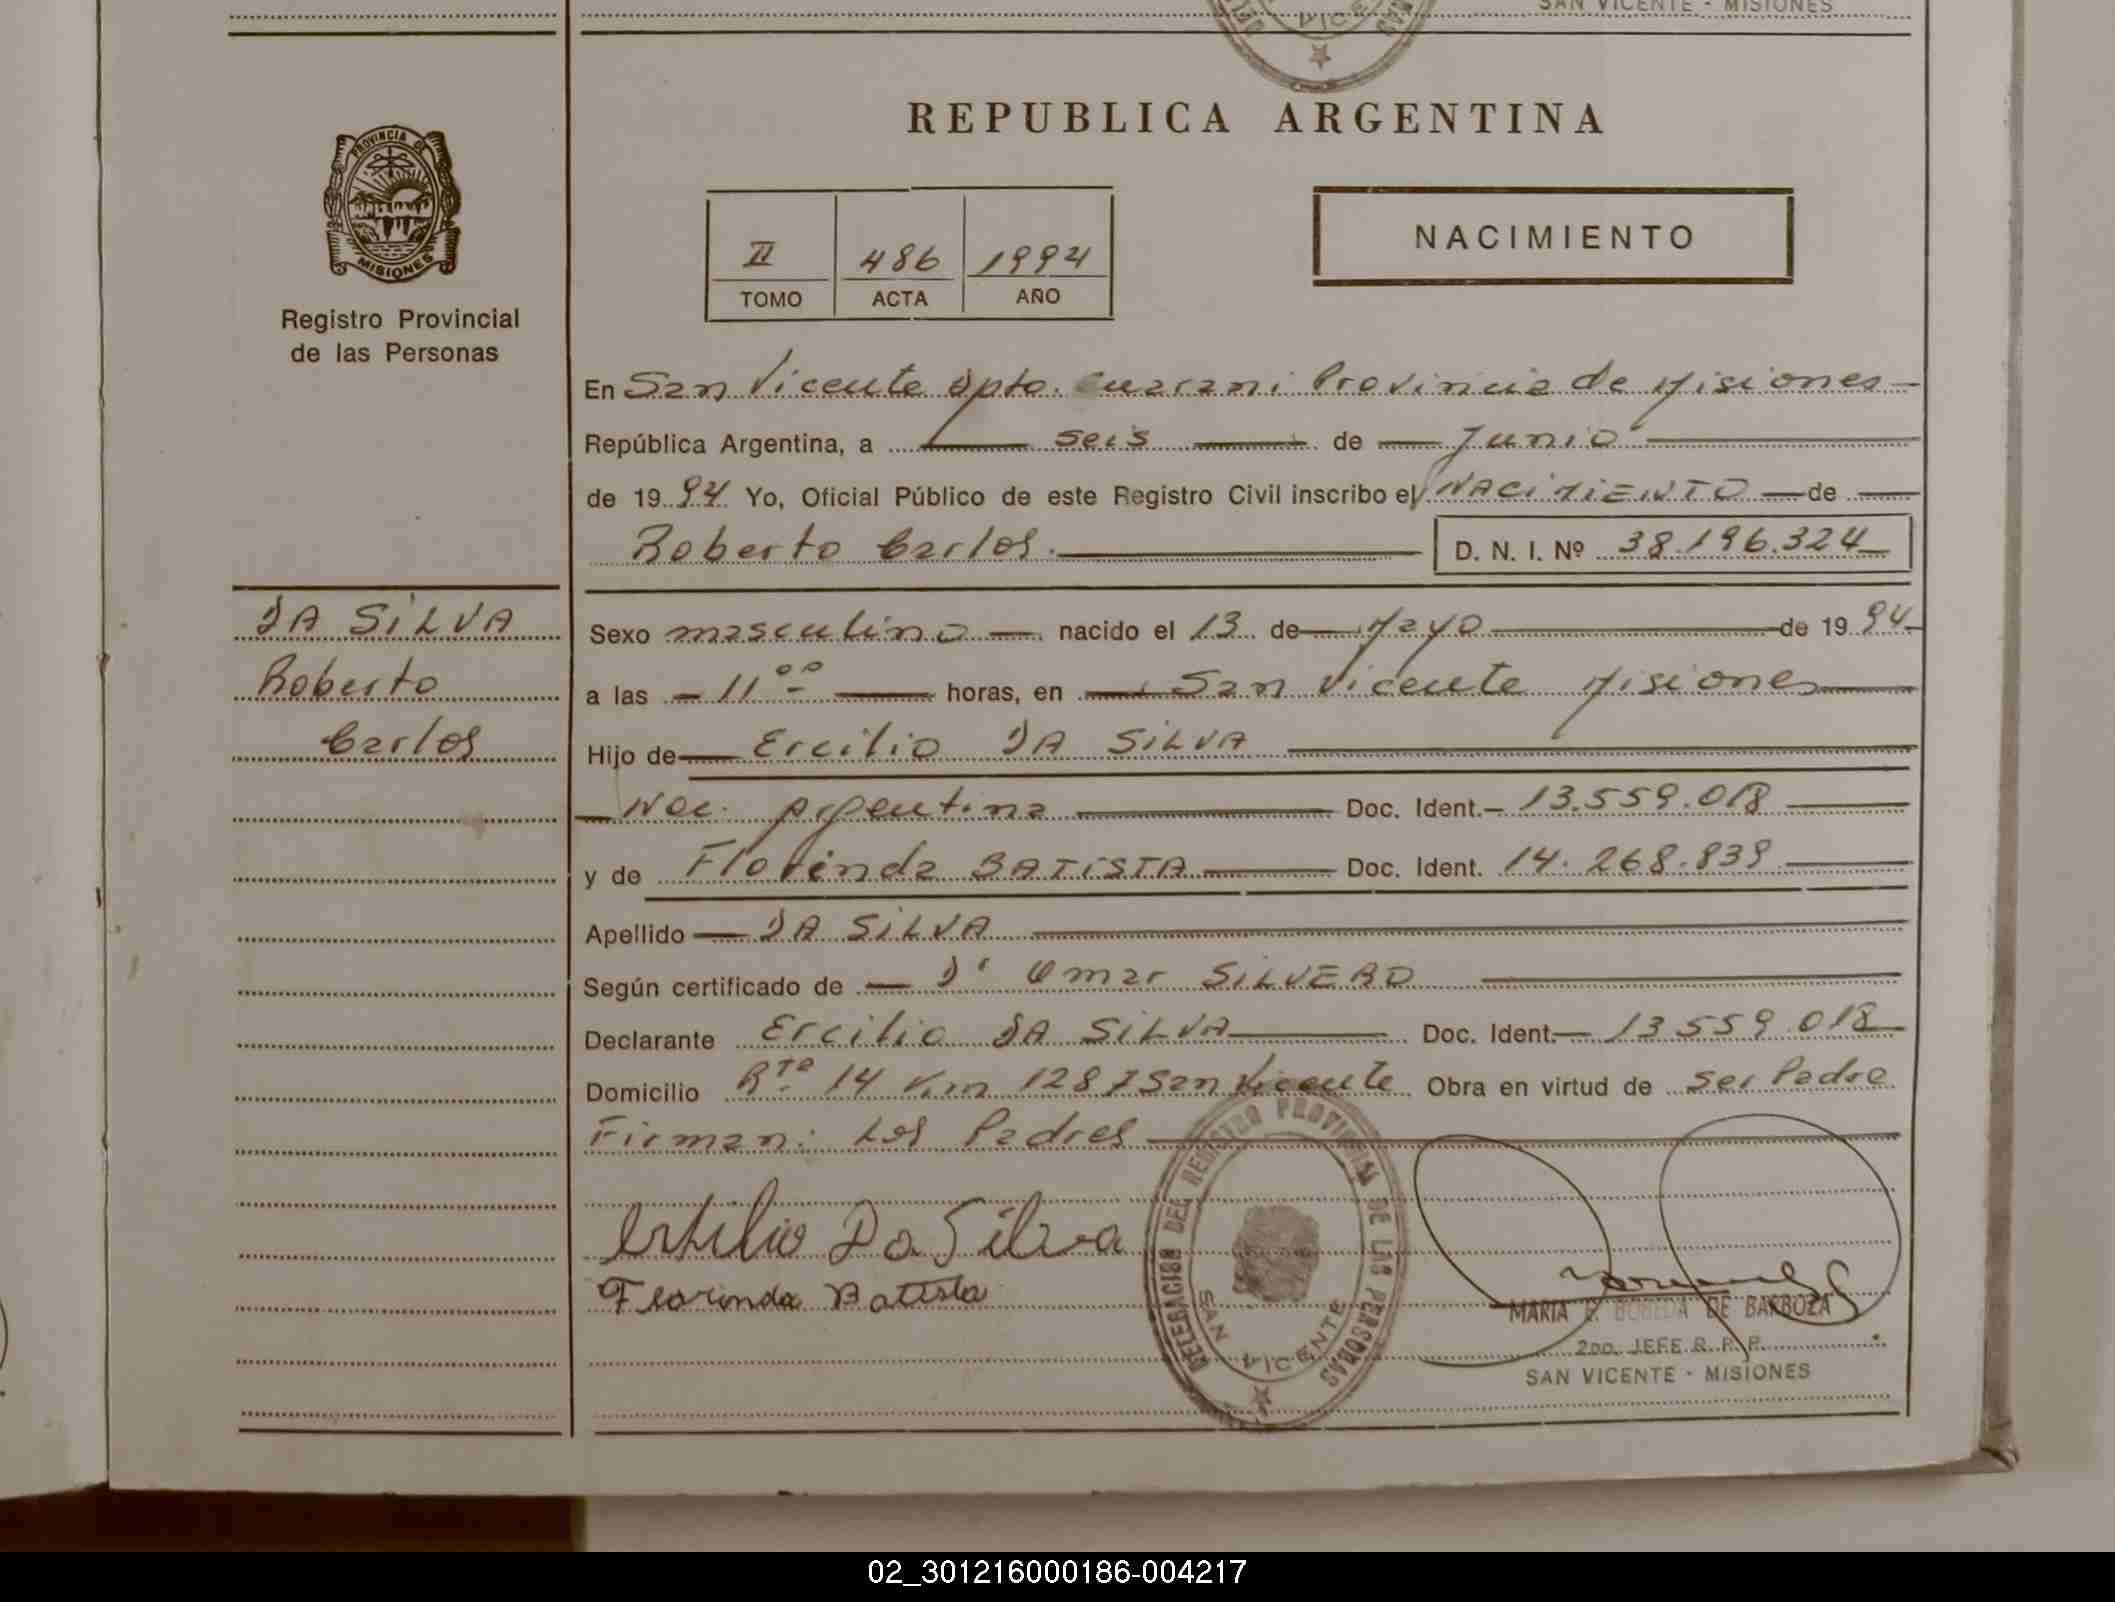 SAN VICENTE - MISIONES
VICE
REPUBLICA ARGENTINA
PROVINCIA DE
MISIONES
Registro Provincial
de las Personas
II 486 1994
TOMO ACTA AÑO
NACIMIENTO
En San Vicente Dpto. Guarani Provincia de Misiones
República Argentina, a seis de Junio
de 1994 Yo, Oficial Público de este Registro Civil inscribo el NACIMIENTO de
Roberto Carlos. D. N. I. Nº 38.196.324
DA SILVA
Roberto
Carlos
Sexo masculino nacido el 13 de Mayo de 1994
a las 11 oo horas, en San Vicente Misiones
Hijo de Ercilio DA SILVA
Nac. Argentina Doc. Ident. 13.559.018
y de Florinda BATISTA Doc. Ident. 14.268.839
Apellido DA SILVA
Según certificado de D' Omar SILVERO
Declarante Ercilio DA SILVA Doc. Ident. 13.559.018
Domicilio Rta 14 Km 1287 San Vicente Obra en virtud de ser Padre
Firman: Los Padres
Da Silva
Florinda Batista
DELEGACION DEL REGISTRO PROVINCIAL DE LAS PERSONAS
SAN VICENTE
MARIA E. BOBEDA DE BARBOZA
2DO. JEFE R. P. P.
SAN VICENTE - MISIONES
02_301216000186-004217